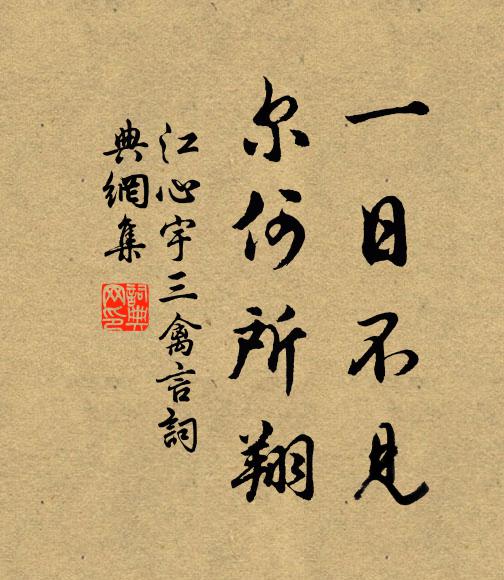 一日不见
尔何所翔
江心宇三禽言詞
典網集
詞典
网印